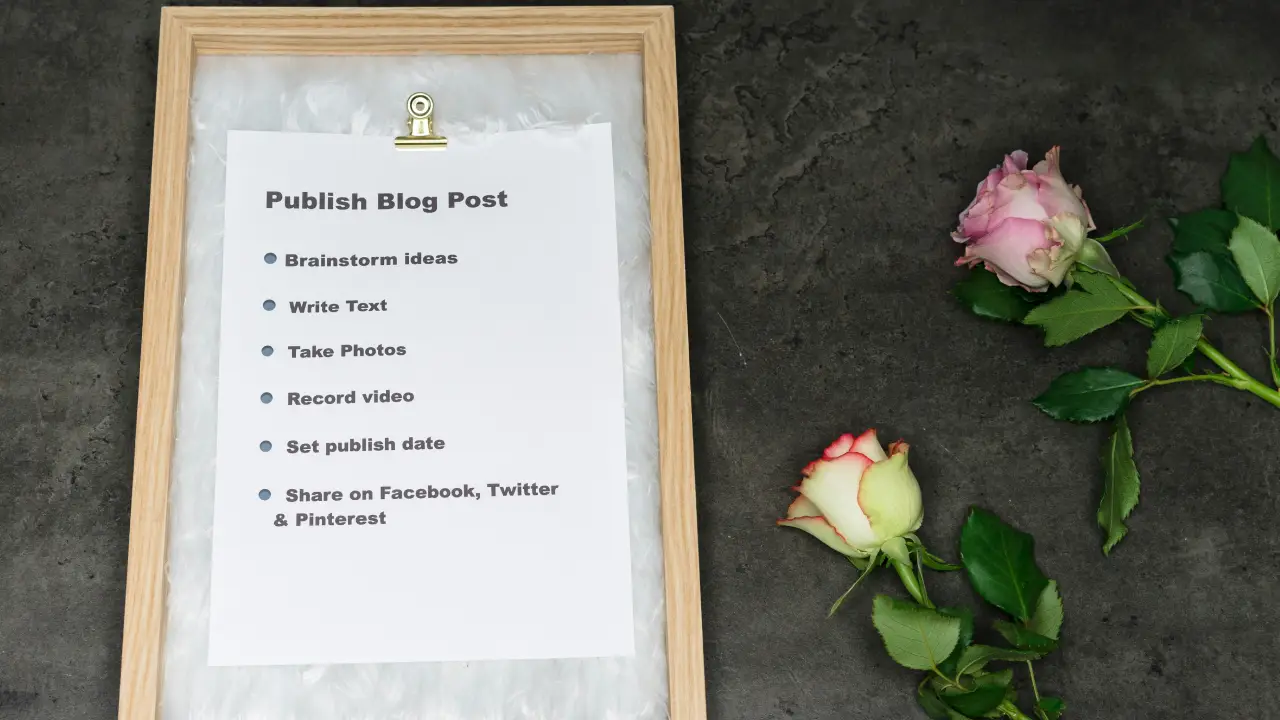 Publish Blog Post
Brainstorm ideas
Write Text
Take Photos
Record video
Set publish date
Share on Facebook, Twitter
& Pinterest